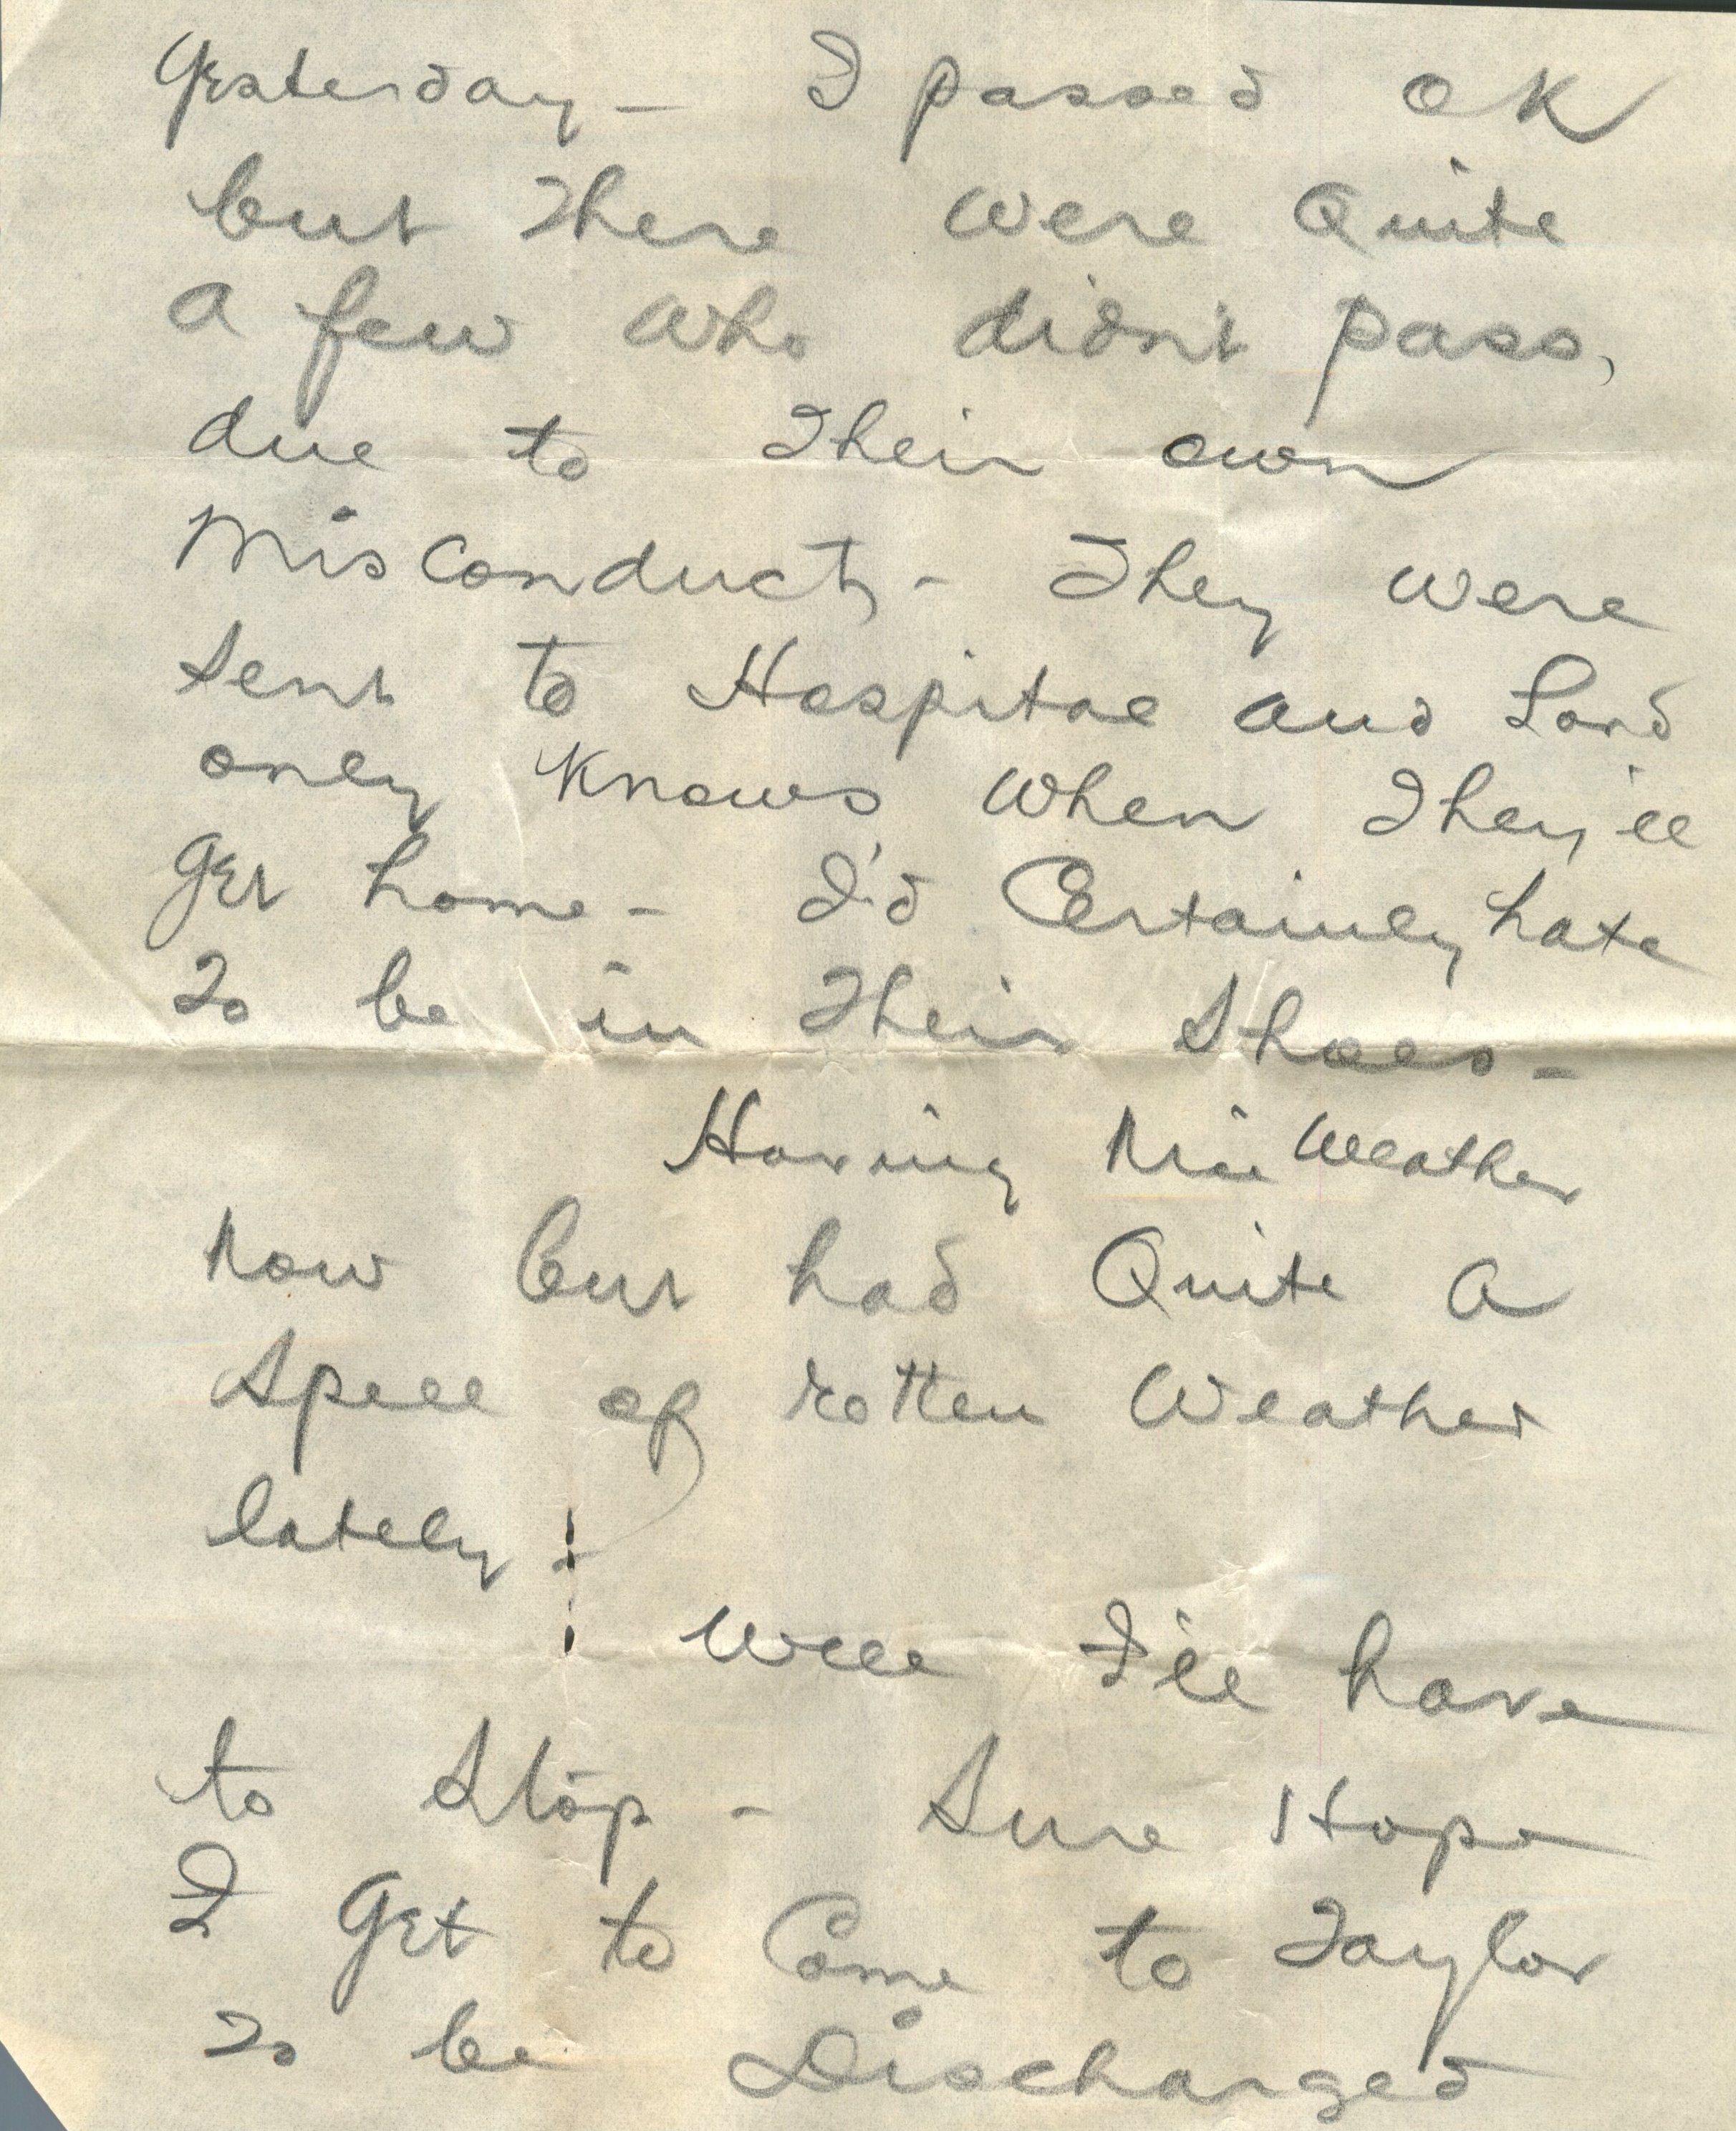 Yesterday - I passed OK
but there were Quite
a few who didn't pass,
due to their own
Misconduct, - They were
sent to Hospital and Lord
only knows when they'll
get home - I'd Certainly hate
to be in their shoes -
Having Nice Weather
now but had Quite a
spell of rotten Weather
lately -
Well I'll have
to stop - Sure Hope
I get to Come to Taylor
to be Discharged